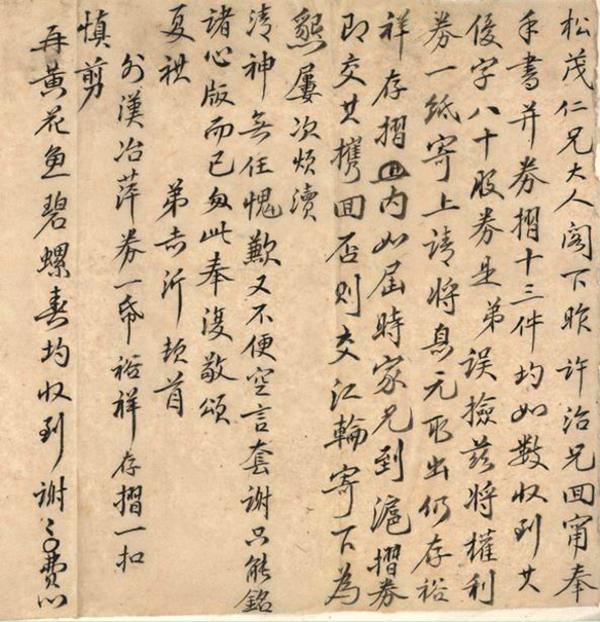 松茂仁兄大人阁下昨许治兄回甯奉
手書并券摺十三件均如数收到其
優字八十股券是弟误撿兹将權利
券一纸寄上请将息元取出仍存裕
祥存摺内如屆時家兄到滬摺券
即交其攜回否则交江輪寄下為
懇屢次煩瀆
清神無任愧歉又不便空言套謝只能銘
诸心版而已匆此奉復敬颂
夏祺 弟 沂頓首
外漢冶萍券一帋裕祥存摺一扣
慎剪
再黄花鱼碧螺春均收到谢々費心